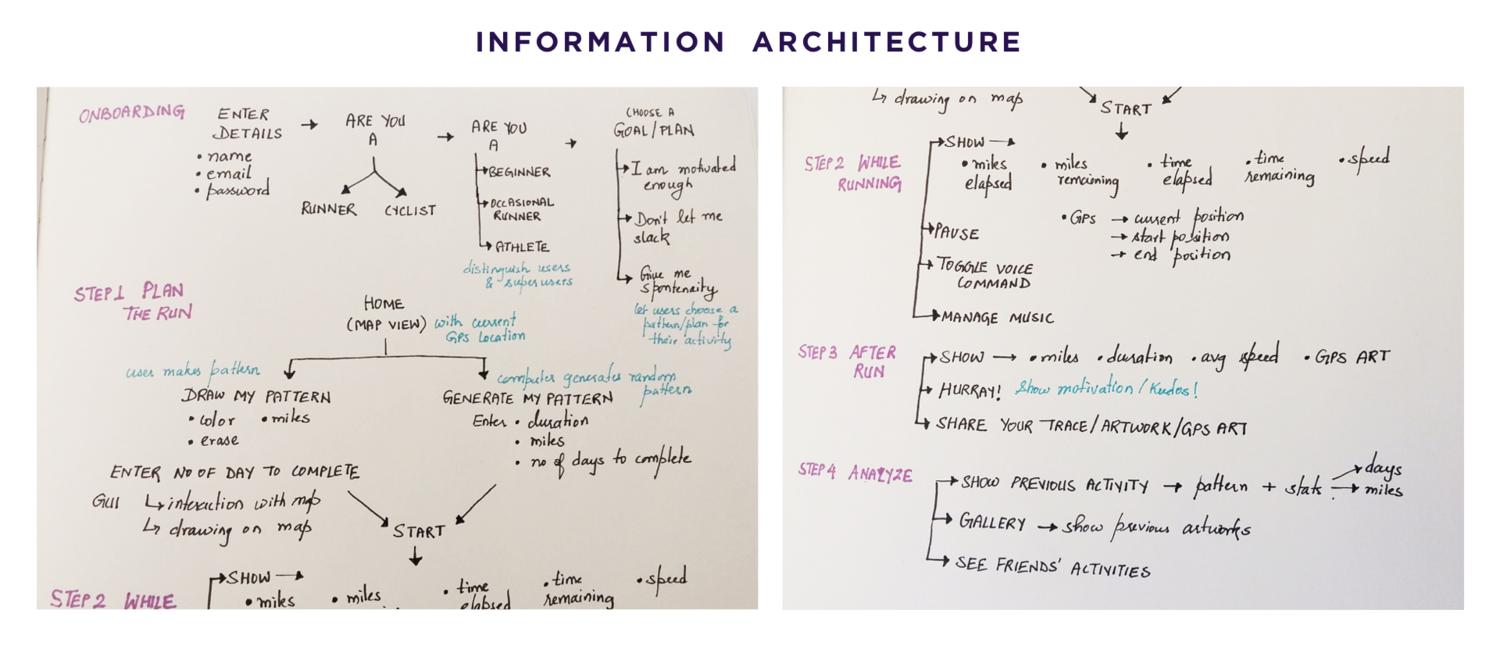 INFORMATION ARCHITECTURE
ONBOARDING
ENTER DETAILS
• name
• email
• password
ARE YOU A
RUNNER CYCLIST
ARE YOU A
BEGINNER
OCCASIONAL RUNNER
ATHLETE
distinguish users
& superusers
CHOOSE A
GOAL/PLAN
I am motivated
enough
Don't let me
slack
Give me
spontenaity
let users choose a
pattern/plan for
their activity
STEP 1 PLAN
THE RUN
HOME
(MAP VIEW) with current
GPS Location
user makes pattern
DRAW MY PATTERN
• color • miles
• erase
ENTER NO OF DAY TO COMPLETE
GUI ↳ interaction with map
↳ drawing on map
computer generates random
pattern
GENERATE MY PATTERN
Enter • duration
• miles
• no of days to complete
START
STEP 2 WHILE
SHOW →
• miles • miles • time elapsed • time remaining • speed
↳ drawing on map
START
STEP 2 WHILE
RUNNING
SHOW →
• miles elapsed • miles remaining • time elapsed • time remaining • speed
• GPS → current position
→ start position
→ end position
PAUSE
TOGGLE VOICE
COMMAND
MANAGE MUSIC
STEP 3 AFTER
RUN
SHOW → • miles • duration • avg speed • GPS ART
HURRAY! Show motivation/Kudos!
SHARE YOUR TRACE/ARTWORK/GPS ART
STEP 4 ANALYZE
SHOW PREVIOUS ACTIVITY → pattern + stats → days
→ miles
GALLERY → show previous artworks
SEE FRIENDS' ACTIVITIES